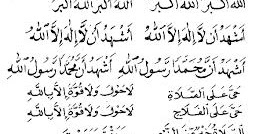 اللهُ أَكْبَرُ اللهُ أَكْبَرُ اللهُ أَكْبَرُ اللهُ أَكْبَرُ
أَشْهَدُ أَنْ لَا إِلٰهَ إِلَّا اللهُ أَشْهَدُ أَنْ لَا إِلٰهَ إِلَّا اللهُ
أَشْهَدُ أَنَّ مُحَمَّدًا رَسُولُ اللهِ أَشْهَدُ أَنَّ مُحَمَّدًا رَسُولُ اللهِ
حَيَّ عَلَى الصَّلَاةِ لَاحَوْلَ وَلَا قُوَّةَ إِلَّا بِاللهِ
حَيَّ عَلَى الْفَلَاحِ لَاحَوْلَ وَلَا قُوَّةَ إِلَّا بِاللهِ